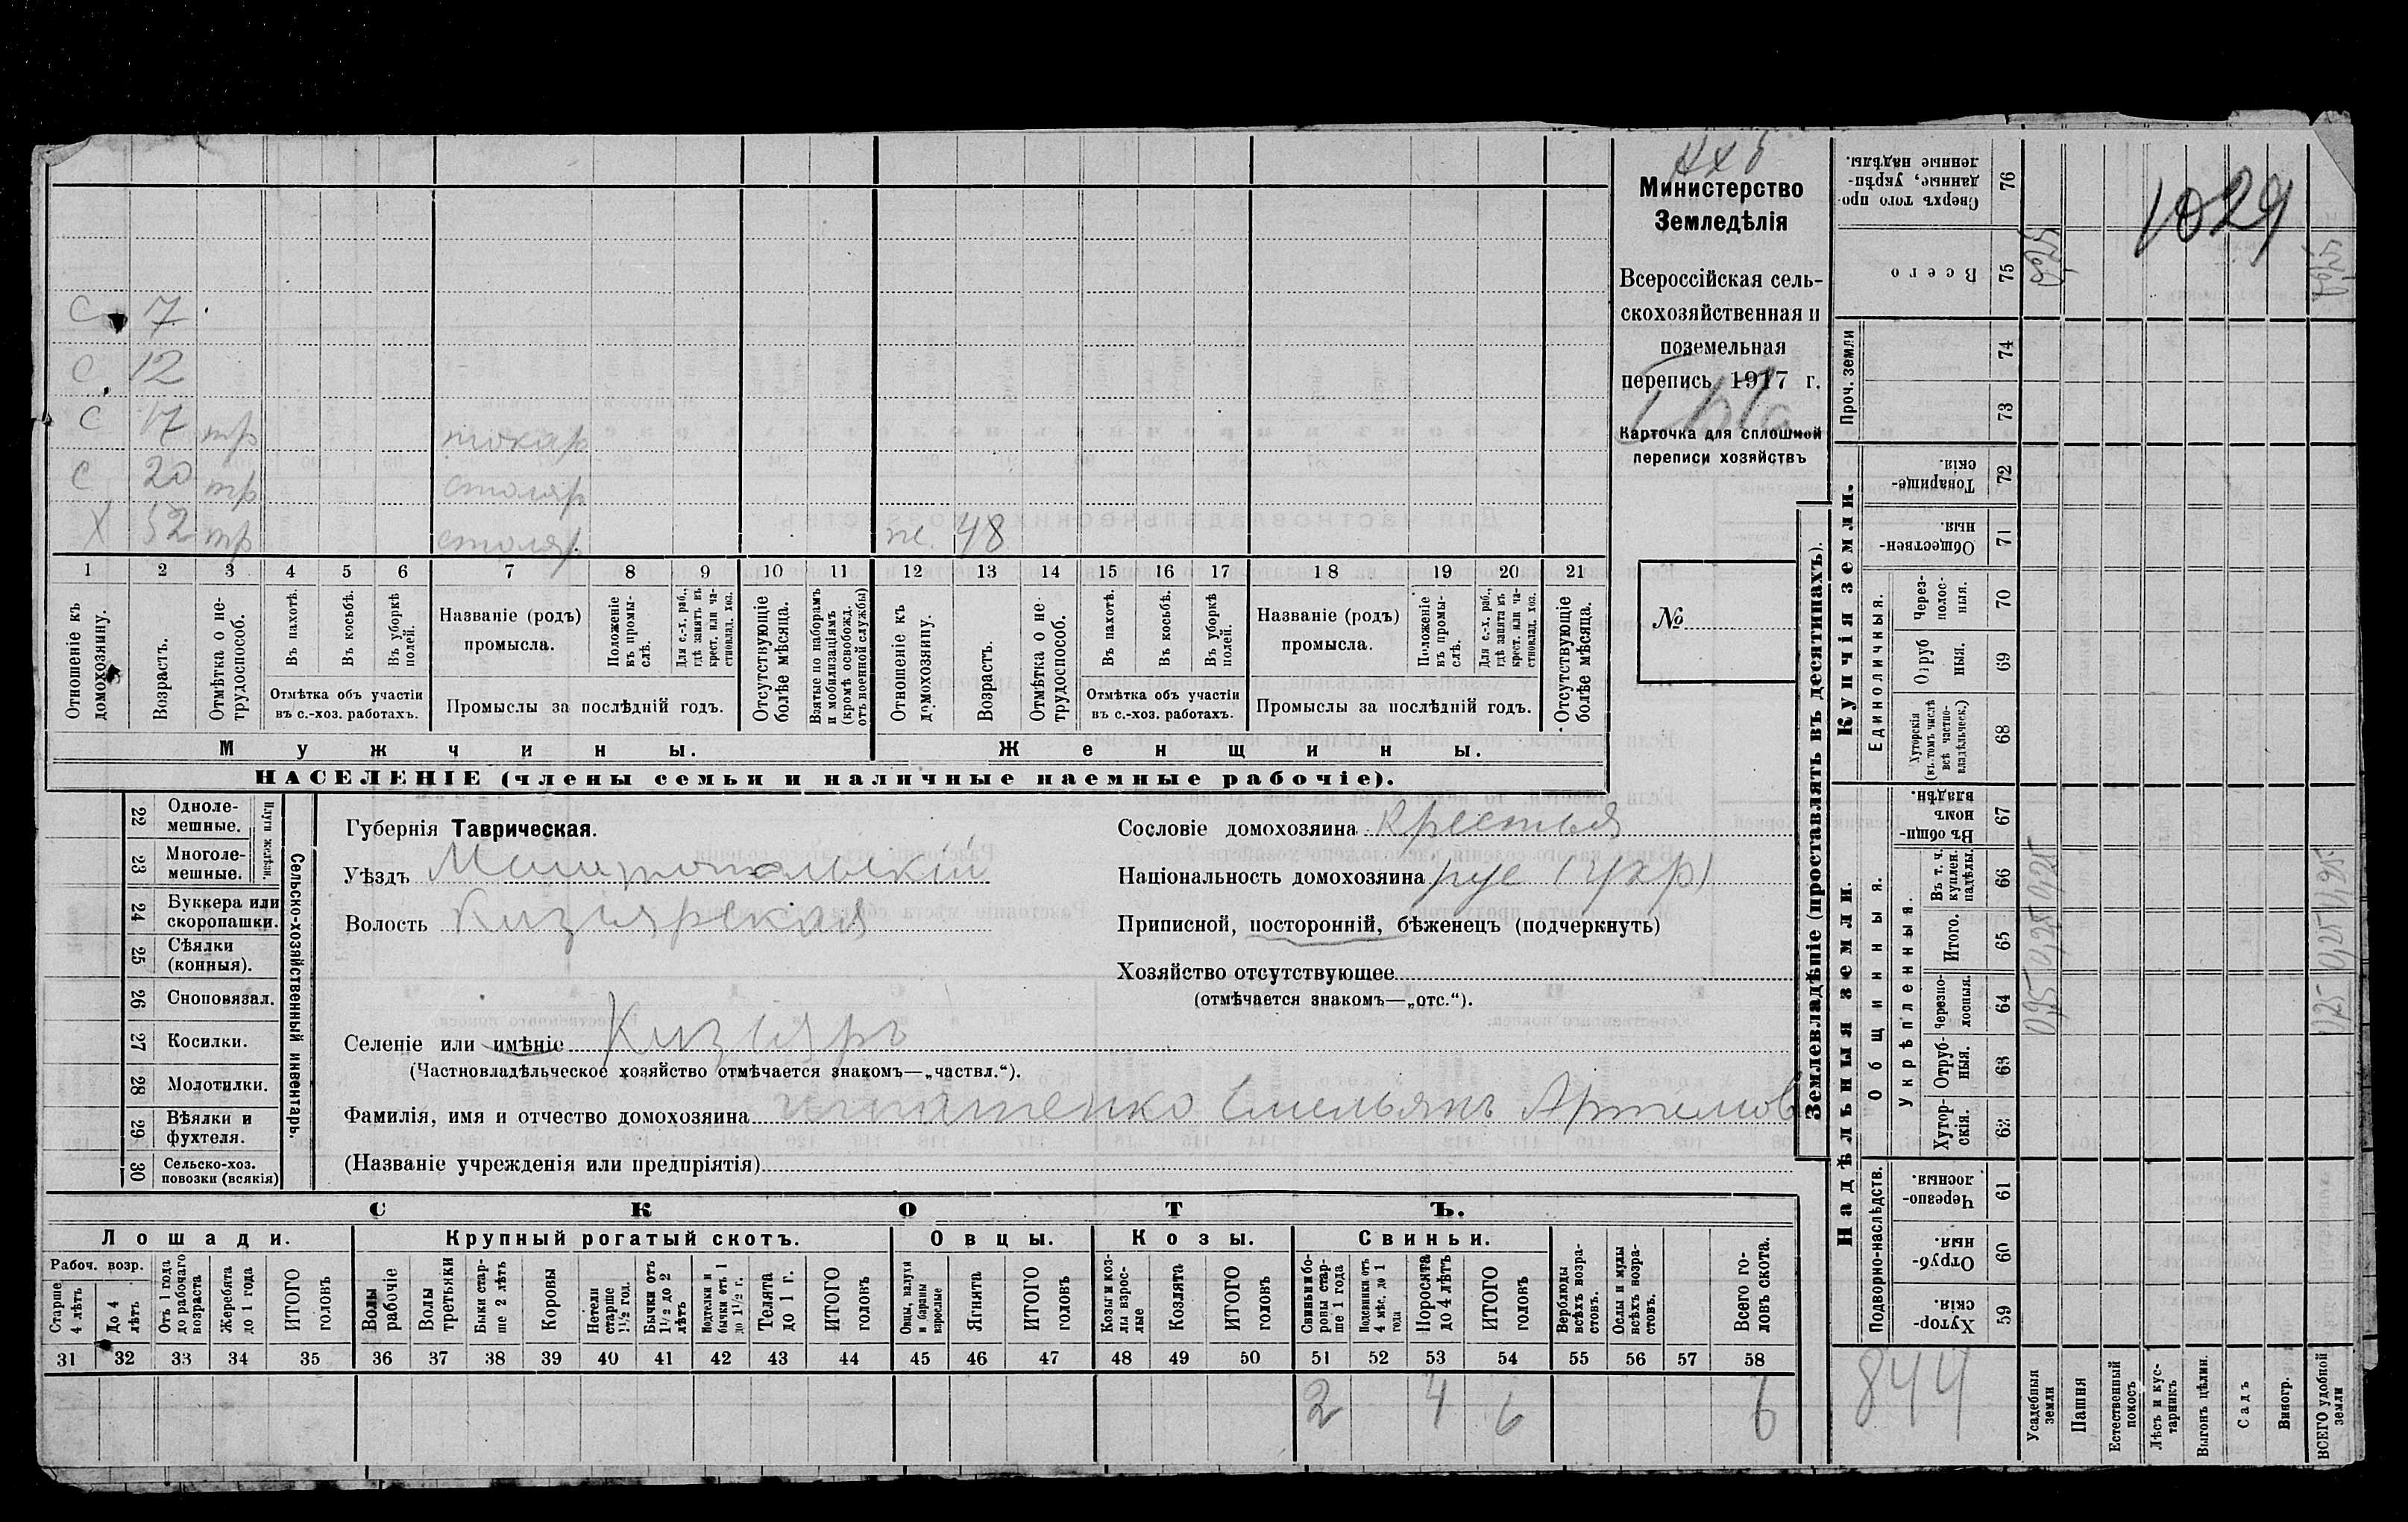 Министерство
Земледѣлія
Всероссійская сель-
скохозяйственная и
поземельная
перепись 1917 г.
Карточка для сплошной
переписи хозяйствъ
№
1029
С 7
С 12
С 17 тр токар
С 20 тр столяр
Х 52 тр столяр ж. 48
1 2 3 4 5 6 7 8 9 10 11 12 13 14 15 16 17 18 19 20 21
Отношеніе къ домохозяину.
Возрастъ.
Отмѣтка о не-трудоспособ.
Въ пахотѣ.
Въ косьбѣ.
Въ уборкѣ полей.
Отмѣтка объ участіи
въ с.-хоз. работахъ.
Названіе (родъ)
промысла.
Положеніе въ промы-слѣ.
Для с.-х. раб., гдѣ занятъ въ крест. или ча-стновлад. хоз.
Промыслы за послѣдній годъ.
Отсутствующіе болѣе мѣсяца.
Взятые по наборамъ и мобилизаціямъ (кромѣ освобожд. отъ военной службы)
Отношеніе къ домохозяину.
Возрастъ.
Отмѣтка о не трудоспособ.
Въ пахотѣ.
Въ косьбѣ.
Въ уборкѣ полей.
Отмѣтка объ участіи
въ с.-хоз. работахъ.
Названіе (родъ)
промысла.
Положеніе въ промы-слѣ.
Для с.-х. раб., гдѣ занята въ крест. или ча-стновлад. хоз.
Промыслы за послѣдній годъ.
Отсутствующіе болѣе мѣсяца.
Мужчины.
Женщины.
НАСЕЛЕНІЕ (члены семьи и наличные наемные рабочіе).
Сельско-хозяйственный инвентарь.
Плуги желѣзн.
22 Одноле-мешные.
23 Многоле-мешные.
24 Буккера или скоропашки.
25 Сѣялки (конныя).
26 Сноповязал.
27 Косилки.
28 Молотилки.
29 Вѣялки и фухтеля.
30 Сельско-хоз. повозки (всякія)
Губернія Таврическая.
Уѣздъ Мелитопольскій
Волость Кизіярская
Селеніе или имѣніе Кизіяръ
(Частновладѣльческое хозяйство отмѣчается знакомъ—„частвл.“).
Фамилія, имя и отчество домохозяина Игнатенко Емельянъ Артемов
(Названіе учрежденія или предпріятія)
Сословіе домохозяина Крестья
Національность домохозяина рус (укр)
Приписной, посторонній, бѣженецъ (подчеркнуть)
Хозяйство отсутствующее
(отмѣчается знакомъ—„отс.“).
СКОТЪ.
Лошади.
Крупный рогатый скотъ.
Овцы.
Козы.
Свиньи.
Рабоч. возр.
Старше 4 лѣтъ
До 4 лѣтъ
Отъ 1 года до рабочаго возраста
Жеребята до 1 года
ИТОГО головъ
Волы рабочіе
Волы третьяки
Быки стар-ше 2 лѣтъ
Коровы
Нетели старше 1½ год.
Бычки отъ 1½ до 2 лѣтъ
Нодтелки и бычки отъ 1 до 1½ г.
Телята до 1 г.
ИТОГО головъ
Овцы, валухи и бараны взрослые
Ягнята
ИТОГО головъ
Козы и коз-лы взрос-лые
Козлята
ИТОГО головъ
Свиньи и бо-ровы стар-ше 1 года
Подсвинки отъ 4 мѣс. до 1 года
Поросята до 4 лѣтъ
ИТОГО головъ
Верблюды всѣхъ возра-стовъ.
Ослы и мулы всѣхъ возра-стовъ.
Всего го-ловъ скота.
31 32 33 34 35 36 37 38 39 40 41 42 43 44 45 46 47 48 49 50 51 52 53 54 55 56 57 58
2 4 6 6
Землевладѣніе (проставлять въ десятинахъ).
Купчія земли.
Надѣльныя земли.
Проч. земли
Единоличныя.
Общинныя.
Укрѣпленныя.
Подворно-наслѣдств.
76 Сверхъ того про-данные, укрѣп-ленные надѣлы.
75 Всего
74
73
72 Товарище-скія.
71 Обществен-ныя.
70 Через-полос-ныя.
69 Отруб ныя.
68 Хуторскія (въ томъ числѣ всѣ частно-владѣльческ.)
67 Въ общи-номъ владѣн.
66 Въ т. ч. куплен. надѣлы.
65 Итого.
64 Черезпо-лосныя.
63 Отруб-ныя.
62 Хутор-скія.
61 Черезпо-лосныя.
60 Отруб-ныя.
59 Хутор-скія.
844
Усадебныя земли
0,25 0,25 0,25 0,25
Пашня
Естественный покосъ
Лѣсъ и кус-тарникъ
Выгонъ цѣлин.
Садъ
Виногр.
ВСЕГО удобной земли
0,25 0,25 0,25 0,25